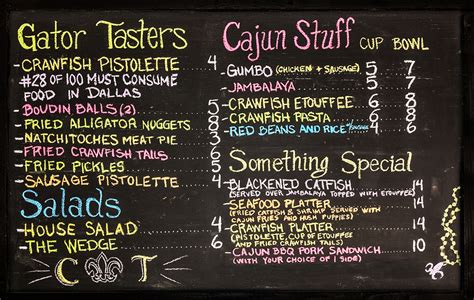 Gator Tasters
CRAWFISH PISTOLETTE 4
#28 OF 100 MUST CONSUME
FOOD IN DALLAS
BOUDIN BALLS (2)
FRIED ALLIGATOR NUGGETS
NATCHITOCHES MEAT PIE
FRIED CRAWFISH TAILS
FRIED PICKLES
SAUSAGE PISTOLETTE
Salads
HOUSE SALAD 4
THE WEDGE 6
C T
Cajun Stuff CUP BOWL
GUMBO (CHICKEN + SAUSAGE) 5 7
JAMBALAYA 5 7
CRAWFISH ETOUFFEE 6 8
CRAWFISH PASTA 6 8
RED BEANS AND RICE 4 6
Something Special
BLACKENED CATFISH 14
SERVED OVER JAMBALAYA TOPPED WITH ETOUFFEE
SEAFOOD PLATTER 14
(FRIED CATFISH & SHRIMP SERVED WITH
CAJUN FRIES AND HUSH PUPPIES)
CRAWFISH PLATTER 14
(PISTOLETTE, CUP OF ETOUFFEE
AND FRIED CRAWFISH TAILS)
CAJUN BBQ PORK SANDWICH 10
(WITH YOUR CHOICE OF 1 SIDE)